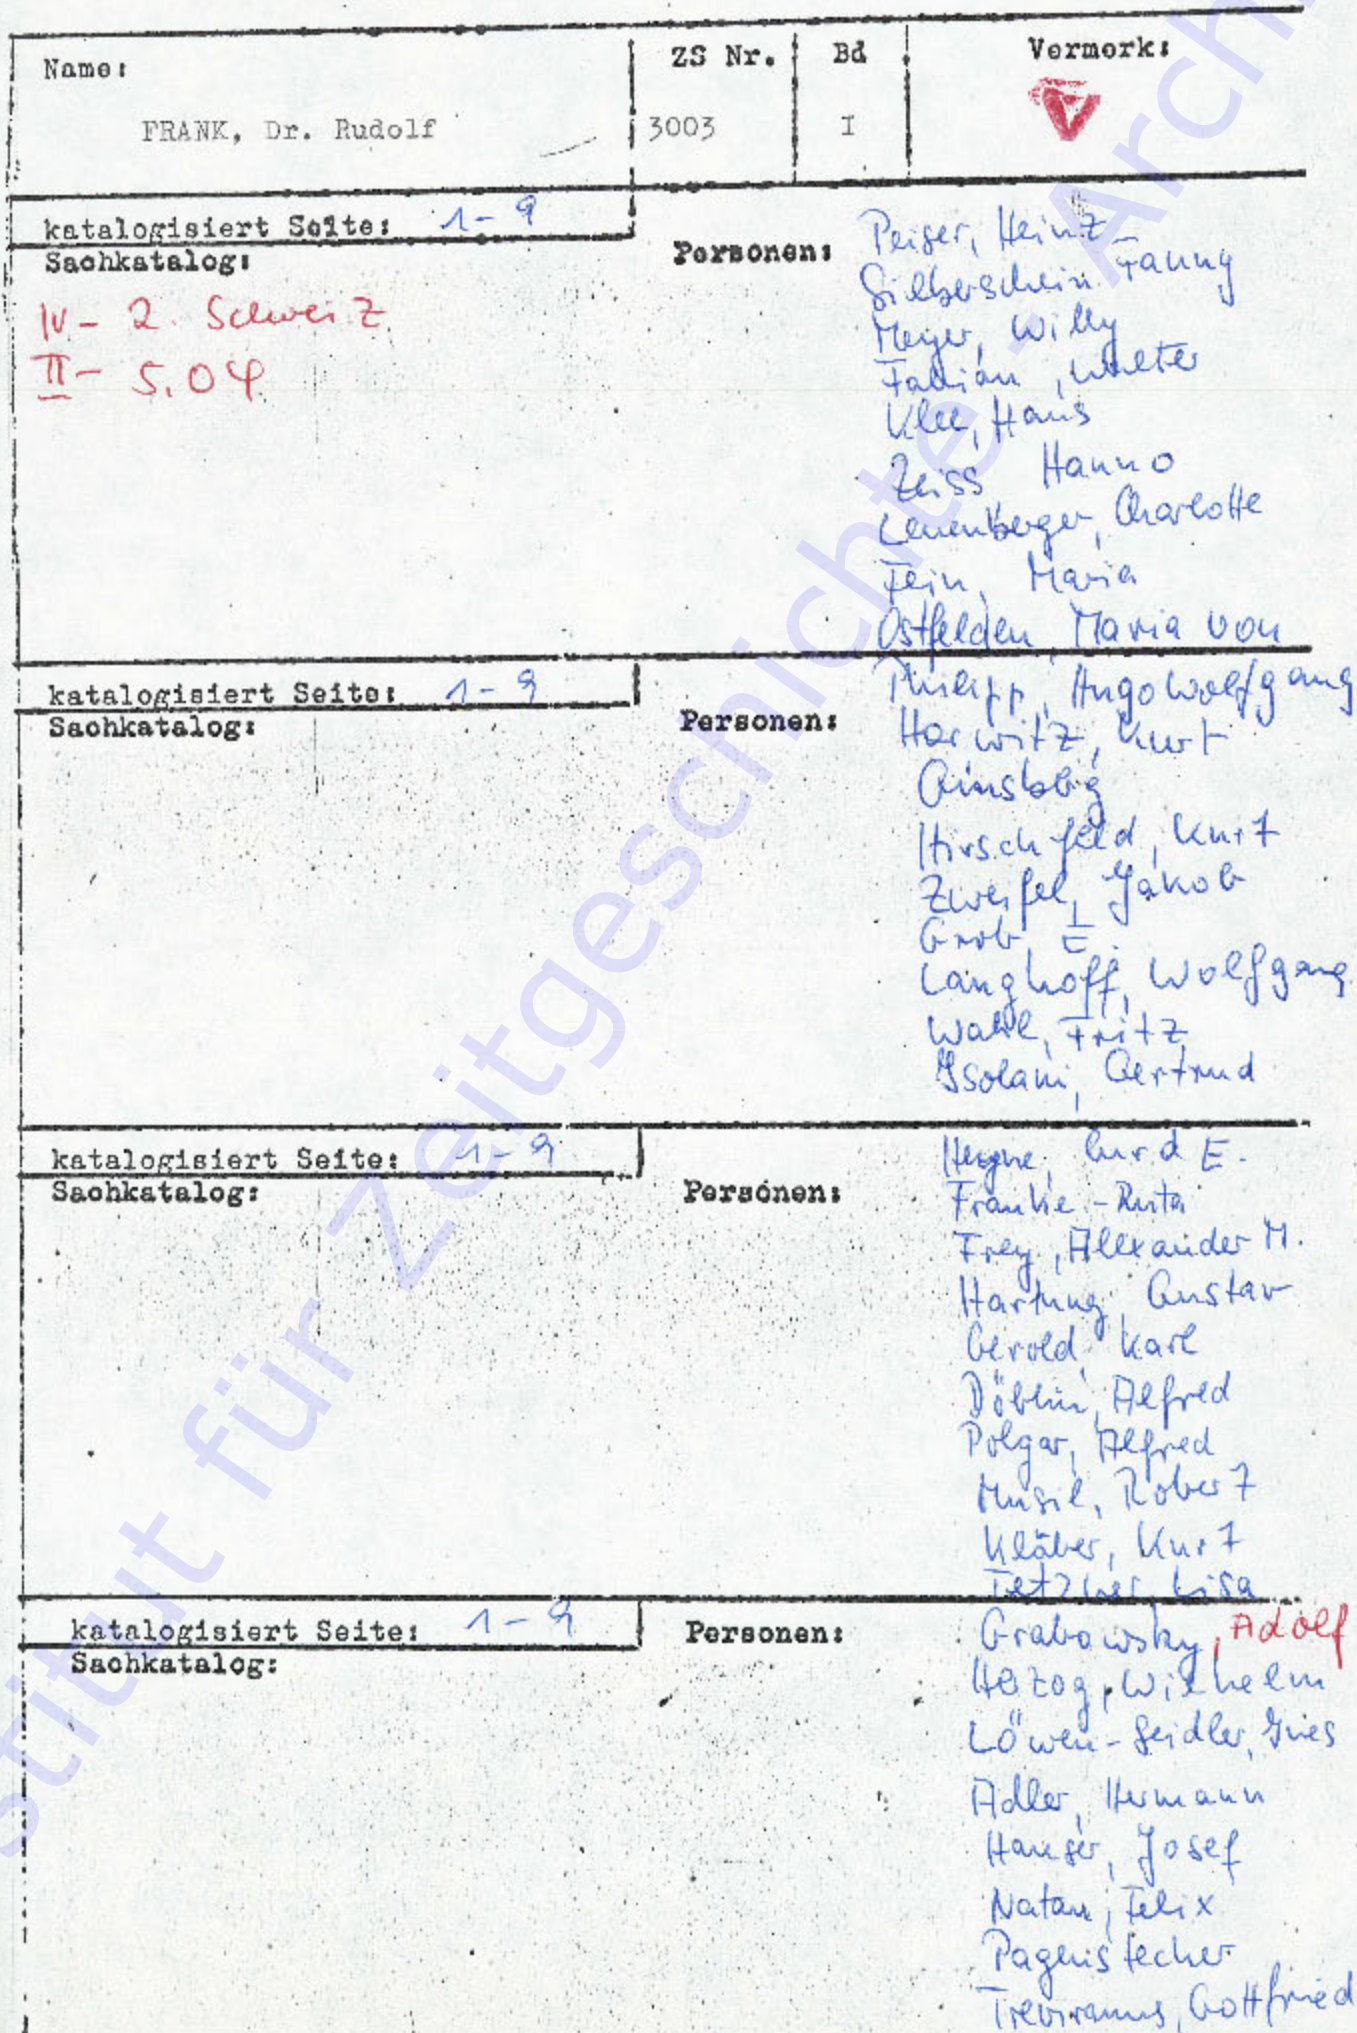 Name: ZS Nr. Bd Vermerk:
FRANK, Dr. Rudolf 3003 I
katalogisiert Seite: 1-9
Sachkatalog:
IV- 2. Schweiz
II- 5.04
Personen:
Peiser, Heinz
Silberschein Fanny
Meyer, Willy
Fabian, Walter
Klee, Hans
Zeiss, Hanno
Leuenberger, Charlotte
Fein, Maria
Ostfelden, Maria von
katalogisiert Seite: 1-9
Sachkatalog:
Personen:
Philipp, Hugo Wolfgang
Horwitz, Kurt
Ginsberg
Hirschfeld, Kurt
Zweifel, Jakob
Grob, E.
Langhoff, Wolfgang
Wahl, Fritz
Isolani, Gertrud
katalogisiert Seite: 1-9
Sachkatalog:
Personen:
Heyne, Curd E.
Franke-Ruta
Frey, Alexander M.
Hartung, Gustav
Gerold, Karl
Döblin, Alfred
Polgar, Alfred
Musil, Robert
Kläber, Kurt
Tetzner, Lisa
katalogisiert Seite: 1-9
Sachkatalog:
Personen:
Grabowsky, Adolf
Herzog, Wilhelm
Löwen-Seidler, Ines
Adler, Hermann
Hauser, Josef
Natan, Felix
Pagenstecher
Treviranus, Gottfried
Institut für Zeitgeschichte - Arch